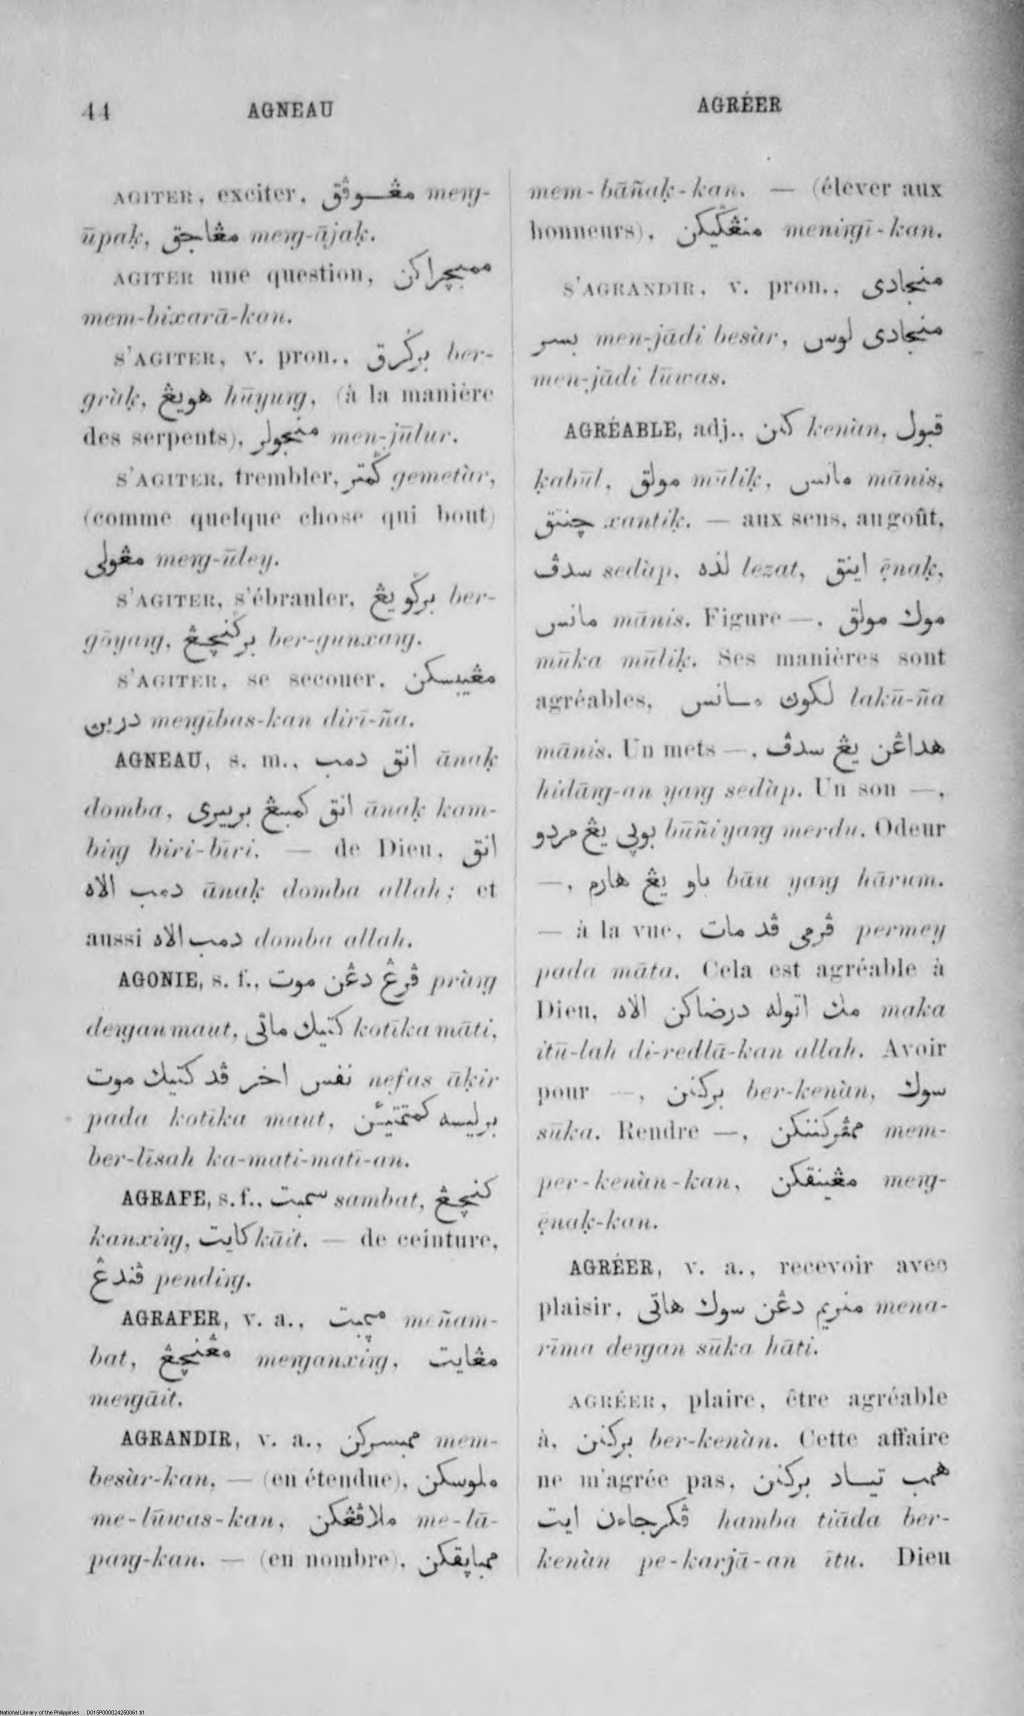 44
AGNEAU
AGRÉER
AGITER, exciter, مڠوڤق meng-
ūpaḳ, مڠاجق meng-ājaḳ.
AGITER une question, ممبچراكن
mem-bixarā-kan.
S'AGITER, v. pron., برݢرق ber-
gràḳ, هويڠ hūyung, (à la manière
des serpents), منجولر men-jūlur.
S'AGITER, trembler, ݢمتر gemetàr,
(comme quelque chose qui bout)
مڠولي meng-ūley.
S'AGITER, s'ébranler, برݢويڠ ber-
gōyang, برݢنچڠ ber-gunxang.
S'AGITER, se secouer, مڠيبسكن
درين mengības-kan dirī-ña.
AGNEAU, s. m., انق دمب ānaḳ
domba, انق كمبڠ بربيري ānaḳ kam-
bing biri-bīri. — de Dieu, انق
دمب الاه ānaḳ domba allah; et
aussi دمب الاه domba allah.
AGONIE, s. f., ڤرڠ دڠن موت pràng
dengan maut, كتيك ماتي kotīka māti,
نفس اخر ڤد كتيك موت nefas āḳir
pada kotīka maut, برليسه كمتمتيئن
ber-līsah ka-mati-mati-an.
AGRAFE, s. f., سمبت sambat, كنچڠ
kanxing, كايت kāit. — de ceinture,
ڤندڠ pending.
AGRAFER, v. a., ميمبت meñam-
bat, مڠنچڠ menganxing, مڠايت
mengāit.
AGRANDIR, v. a., ممبسركن mem-
besàr-kan, — (en étendue), ملوسكن
me-lūwas-kan, ملاڤڠكن me-lā-
pang-kan. — (en nombre), ممباپقكن
mem-bāñaḳ-kan. — (élever aux
honneurs), منڠݢيكن meningī-kan.
S'AGRANDIR, v. pron., منجادي
بسر men-jādi besàr, منجادي لوس
men-jādi lūwas.
AGRÉABLE, adj., كنن kenàn, قبول
ḳabūl, مولق mūliḳ, مانس mānis,
چنتق xantiḳ. — aux sens, au goût,
سدڤ sedàp, لذه lezat, اينق ēnaḳ,
مانس mānis. Figure —, موك مولق
mūka mūliḳ. Ses manières sont
agréables, لكون مانس lakū-ña
mānis. Un mets —, هداڠن يڠ سدڤ
hidāng-an yang sedàp. Un son —,
بوپي يڠ مردو būñi yang merdu. Odeur
—, باو يڠ هارم bāu yang hārum.
— à la vue, ڤرمي ڤد مات permey
pada māta. Cela est agréable à
Dieu, مك اتوله درضاكن الاه maka
itū-lah di-redlā-kan allah. Avoir
pour —, بركنن ber-kenàn, سوك
sūka. Rendre —, ممڤركننكن mem-
per-kenàn-kan, مڠينقكن meng-
ēnaḳ-kan.
AGRÉER, v. a., recevoir avec
plaisir, منريم دڠن سوك هاتي mena-
rīma dengan sūka hāti.
AGRÉER, plaire, être agréable
à, بركنن ber-kenàn. Cette affaire
ne m'agrée pas, همب تياد بركنن
ڤكرجاءن ايت hamba tiāda ber-
kenàn pe-karjā-an ītu. Dieu
National Library of the Philippines